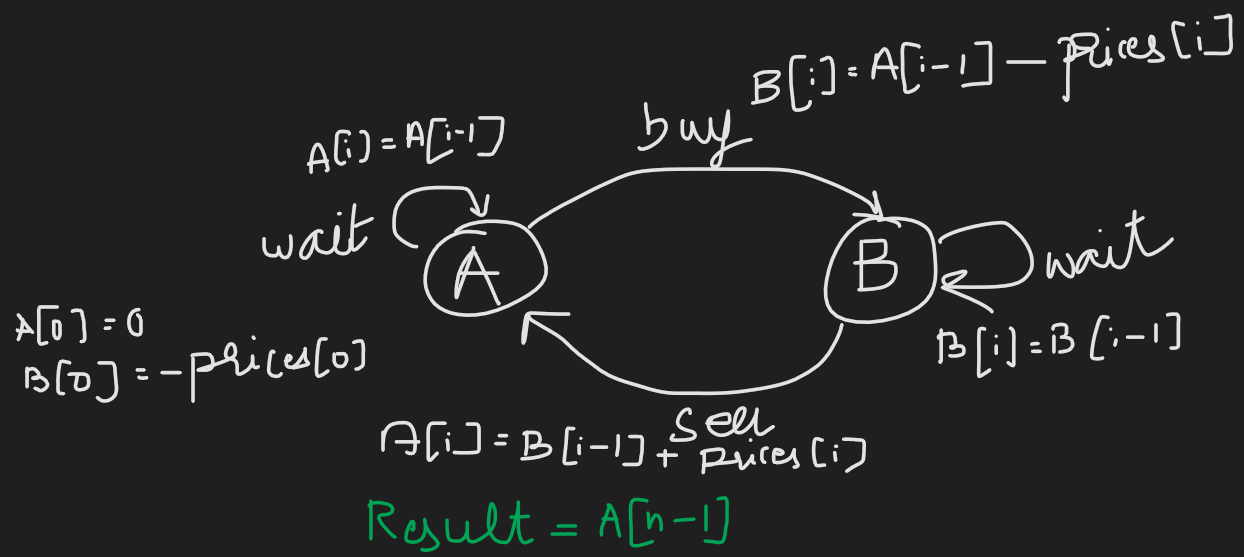 B[i] = A[i-1] - prices[i]
buy
A[i] = A[i-1]
wait
A
B
wait
A[0] = 0
B[0] = -prices[0]
B[i] = B[i-1]
sell
A[i] = B[i-1] + prices[i]
Result = A[n-1]